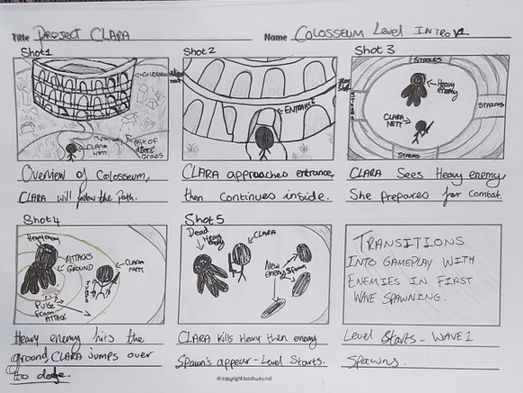 Title PROJECT CLARA
Name COLOSSEUM Level INTRO V1
Shot 1
COLOSSEUM
CLARA NETT
Overview of Colosseum,
CLARA will follow the Path.
Shot 2
ENTRANCE
CLARA approaches entrance,
then continues inside.
Shot 3
STAIRS
Heavy enemy
CLARA NETT
STAIRS
STAIRS
CLARA Sees Heavy enemy,
She prepares for combat.
Shot 4
Heavy enemy
ATTACKS GROUND
CLARA NETT
JUMPS
Pulse From ATTACK
Heavy enemy hits the
ground, CLARA jumps over
to dodge.
Shot 5
Dead Heavy enemy
CLARA
New enemy Spawn
CLARA kills Heavy then enemy
Spawn's appear - Level Starts.
TRANSITIONS
INTO GAMEPLAY WITH
ENEMIES IN FIRST
WAVE SPAWNING.
Level Starts - WAVE 1
Spawns.